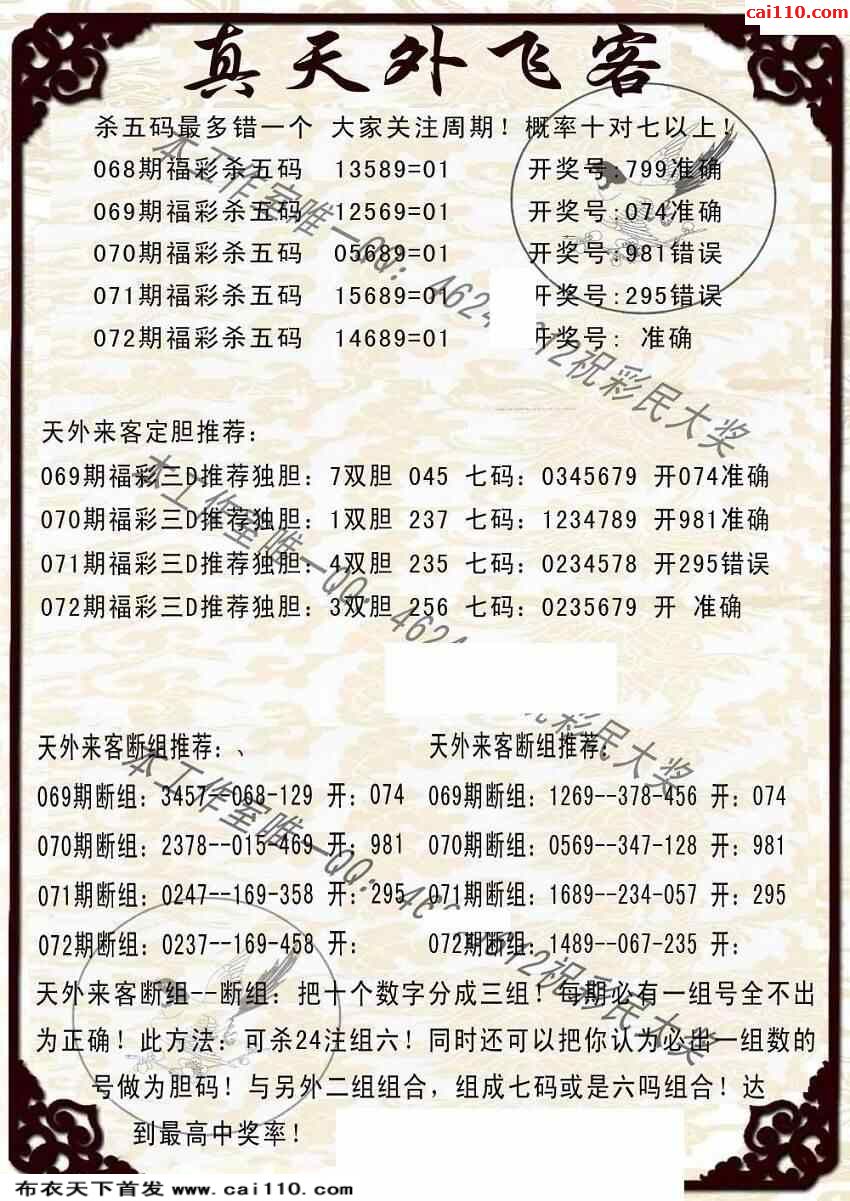 cai110.com
真天外飞客
杀五码最多错一个 大家关注周期！概率十对七以上！
068期福彩杀五码 13589=01 开奖号:799准确
069期福彩杀五码 12569=01 开奖号:074准确
070期福彩杀五码 05689=01 开奖号:981错误
071期福彩杀五码 15689=01 开奖号:295错误
072期福彩杀五码 14689=01 开奖号: 准确
天外来客定胆推荐：
069期福彩三D推荐独胆：7双胆 045 七码：0345679 开074准确
070期福彩三D推荐独胆：1双胆 237 七码：1234789 开981准确
071期福彩三D推荐独胆：4双胆 235 七码：0234578 开295错误
072期福彩三D推荐独胆：3双胆 256 七码：0235679 开 准确
天外来客断组推荐：、 天外来客断组推荐：
069期断组：3457--068-129 开：074 069期断组：1269--378-456 开：074
070期断组：2378--015-469 开：981 070期断组：0569--347-128 开：981
071期断组：0247--169-358 开：295 071期断组：1689--234-057 开：295
072期断组：0237--169-458 开： 072期断组：1489--067-235 开：
天外来客断组--断组：把十个数字分成三组！每期必有一组号全不出
为正确！此方法：可杀24注组六！同时还可以把你认为必出一组数的
号做为胆码！与另外二组组合，组成七码或是六吗组合！达
到最高中奖率！
本工作室唯一QQ：4624
12祝彩民大奖
本工作室唯一QQ：4624
祝彩民大奖
本工作室唯一QQ：46
12祝彩民大奖
布衣天下首发 www.cai110.com